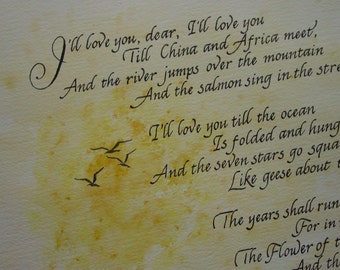 I'll love you, dear, I'll love you
Till China and Africa meet,
And the river jumps over the mountain
And the salmon sing in the stre
I'll love you till the ocean
Is folded and hung
And the seven stars go squa
Like geese about t
The years shall run
For in
The Flower of t
And th